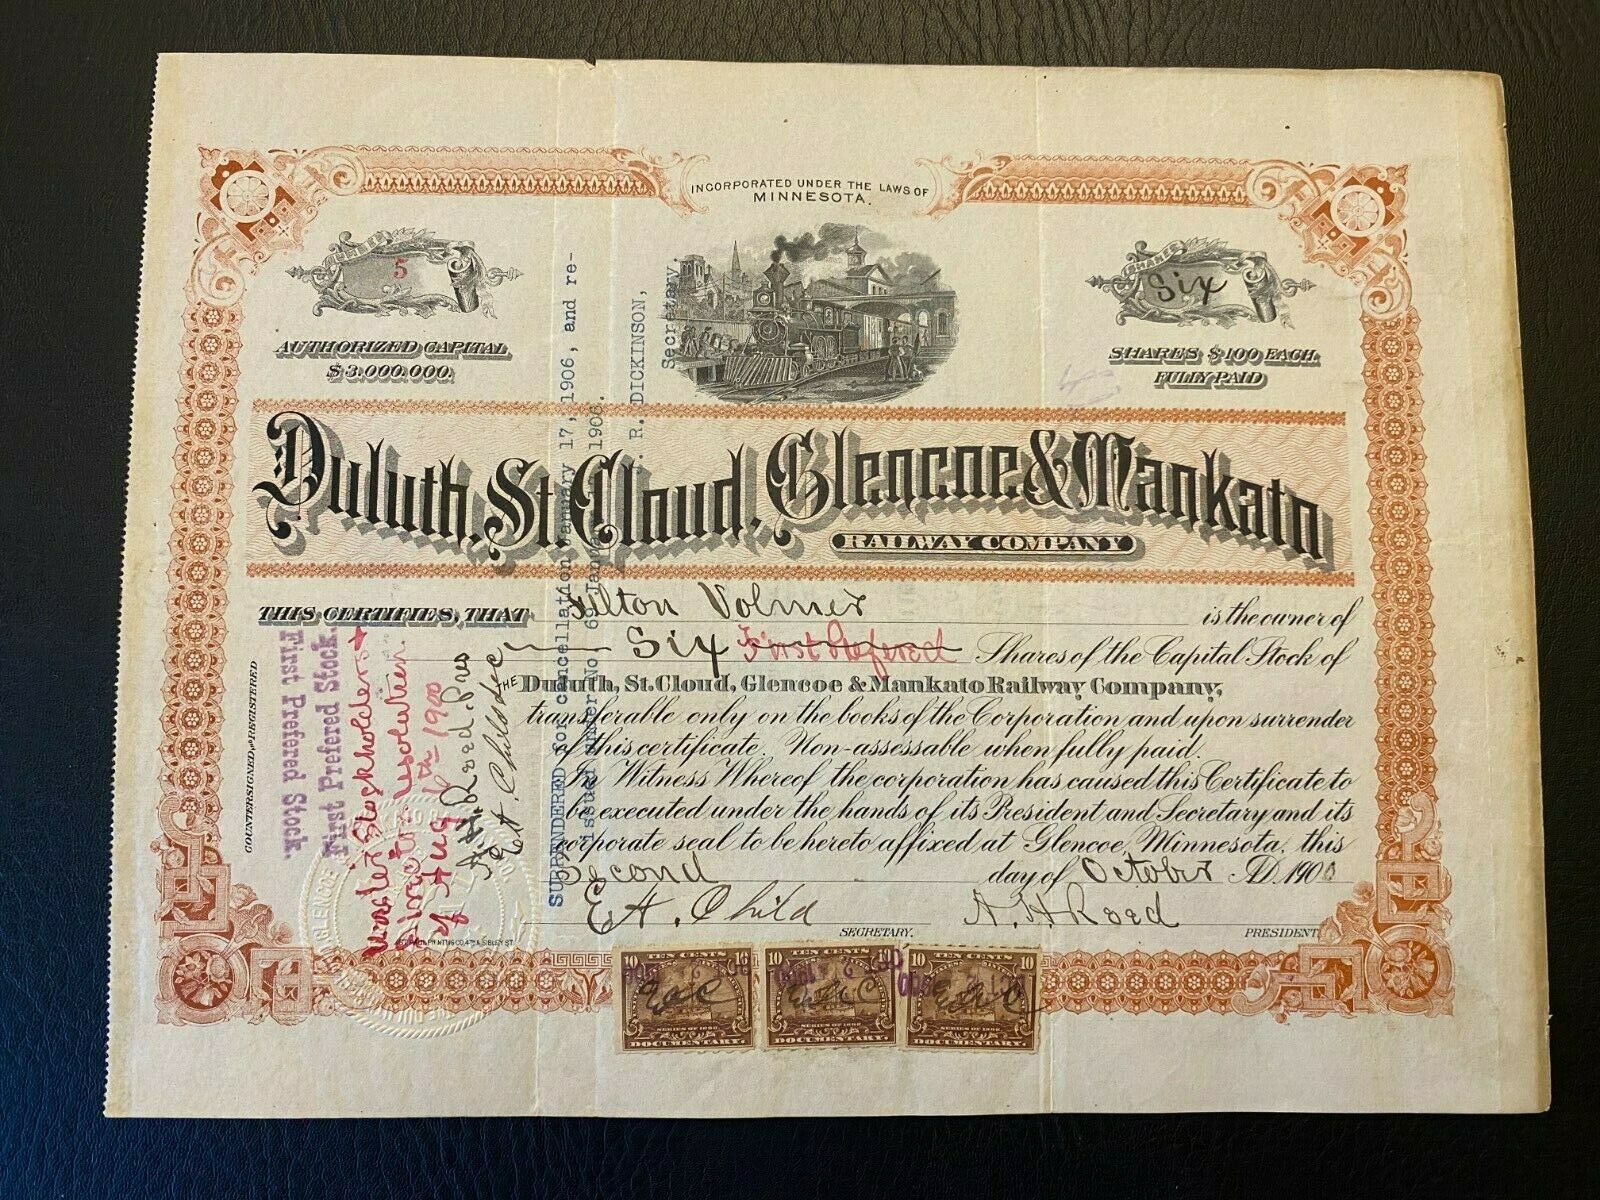 INCORPORATED UNDER THE LAWS OF
MINNESOTA.
NUMBER
5
SHARES
Six
AUTHORIZED CAPITAL
$3.000.000.
SHARES $100 EACH.
FULLY PAID
Duluth, St. Cloud, Glencoe & Mankato
RAILWAY COMPANY
THIS CERTIFIES, THAT Tilton Volmer is the owner of
Six First Prefered Shares of the Capital Stock of
THE Duluth, St. Cloud, Glencoe & Mankato Railway Company,
transferable only on the books of the Corporation and upon surrender
of this certificate. Non-assessable when fully paid.
In Witness Whereof the corporation has caused this Certificate to
be executed under the hands of its President and Secretary and its
corporate seal to be hereto affixed at Glencoe, Minnesota, this
Second day of October A.D. 1900
E. A. Child A. H. Reed
SECRETARY. PRESIDENT.
COUNTERSIGNED, and REGISTERED
First Prefered Stock.
First Prefered Stock.
under Stockholders
Directors resolution
of Aug 6th 1900
A. H. Reed. Pres
E. A. Child Sec
SURRENDERED for cancellation January 17, 1906, and re-
issued under No. 69 January 1906.
R. DICKINSON,
Secretary.
10 TEN CENTS 10
OCT 2 1900
E A C
SERIES OF 1898
DOCUMENTARY.
10 TEN CENTS 10
OCT 2 1900
E A C
SERIES OF 1898
DOCUMENTARY.
10 TEN CENTS 10
OCT 2 1900
E A C
SERIES OF 1898
DOCUMENTARY.